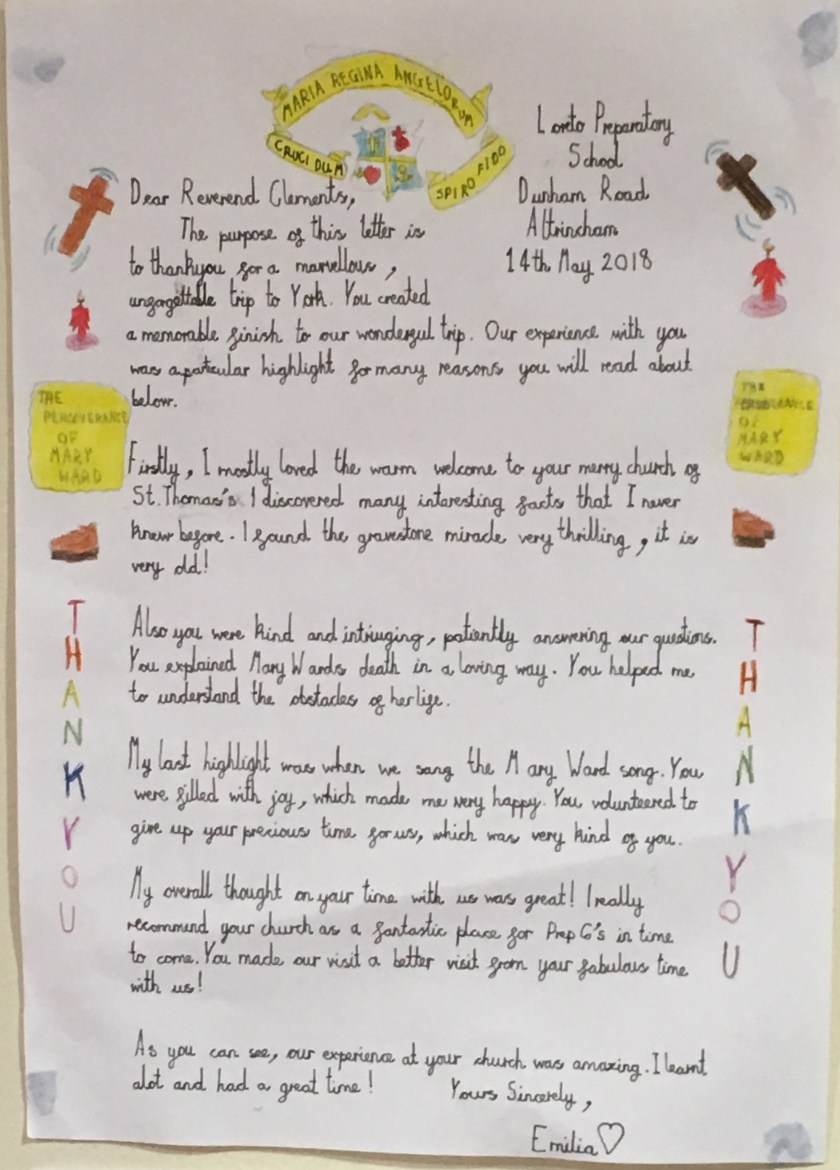 MARIA REGINA ANGELORUM
CRUCI DUM
SPIRO FIDO
Loreto Preparatory
School
Dunham Road
Altrincham
14th May 2018
Dear Reverend Clements,
The purpose of this letter is
to thankyou for a marvellous,
unforgettable trip to York. You created
a memorable finish to our wonderful trip. Our experience with you
was a particular highlight for many reasons you will read about
below.
Firstly, I mostly loved the warm welcome to your merry church of
St. Thomas's I discovered many interesting facts that I never
knew before. I found the gravestone miracle very thrilling, it is
very old!
Also you were kind and intriuging, patiently answering our questions.
You explained Mary Wards death in a loving way. You helped me
to understand the obstacles of her life.
My last highlight was when we sang the Mary Ward song. You
were filled with joy, which made me very happy. You volunteered to
give up your precious time for us, which was very kind of you.
My overall thought on your time with us was great! I really
recommend your church as a fantastic place for Prep 6's in time
to come. You made our visit a better visit from your fabulous time
with us!
As you can see, our experience at your church was amazing. I learnt
alot and had a great time!
Yours Sincerely,
Emilia
THE
PERSEVERANCE
OF
MARY
WARD
THANK YOU
THE
OF
MARY
WARD
THANK YOU